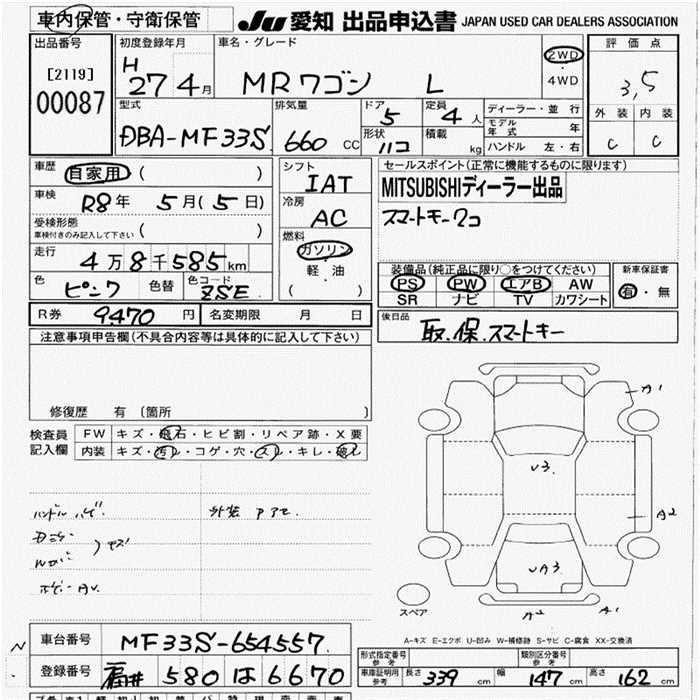 車内保管・守衛保管
JU 愛知 出品申込書 JAPAN USED CAR DEALERS ASSOCIATION
出品番号
[2119]
00087
初度登録年月
H 27 4月
車名・グレード
MRワゴン L
2WD
・
4WD
評価点
3,5
外装 内装
C C
型式
DBA-MF33S
排気量
660 CC
ドア
5
形状
ハコ
定員
4人
積載
kg
ディーラー・並行
モデル年式 年
ハンドル 左・右
車歴
自家用 ( )
車検
R8年 5月(5日)
受検形態
車検付きのみ記入して下さい ( )
走行
4万8千585km
色
ピンク
色替
色コード
ZSE
シフト
IAT
冷房
AC
燃料
ガソリン
軽・油
( )
セールスポイント(正常に機能するものに限ります)
MITSUBISHIディーラー出品
スマートキー2コ
装備品(純正品に限り○をつけてください)
PS PW エアB AW
SR ナビ TV カワシート
新車保証書
有・無
R券 9,470円
名変期限 月 日
後日品
取.保.スマートキー
注意事項申告欄(不具合内容等は具体的に記入して下さい)
修復歴 有 (箇所 )
検査員
記入欄
FW キズ・飛石・ヒビ割・リペア跡・X要
内装 キズ・汚レ・コゲ・穴・スレ・キレ・破レ
ハンドル ハゲ
外装
キズ
A1
U3.
A2
UA3.
A2 A1
スペア
A-キズ E-エクボ U-凹み W-補修跡 S-サビ C-腐食 XX-交換済
N
車台番号 MF33S-654557
登録番号 福井 580 は 6670
形式指定番号
参考
類別区分番号
参考
車庫証明用
参考
長さ 339 cm 幅 147 cm 高さ 162 cm